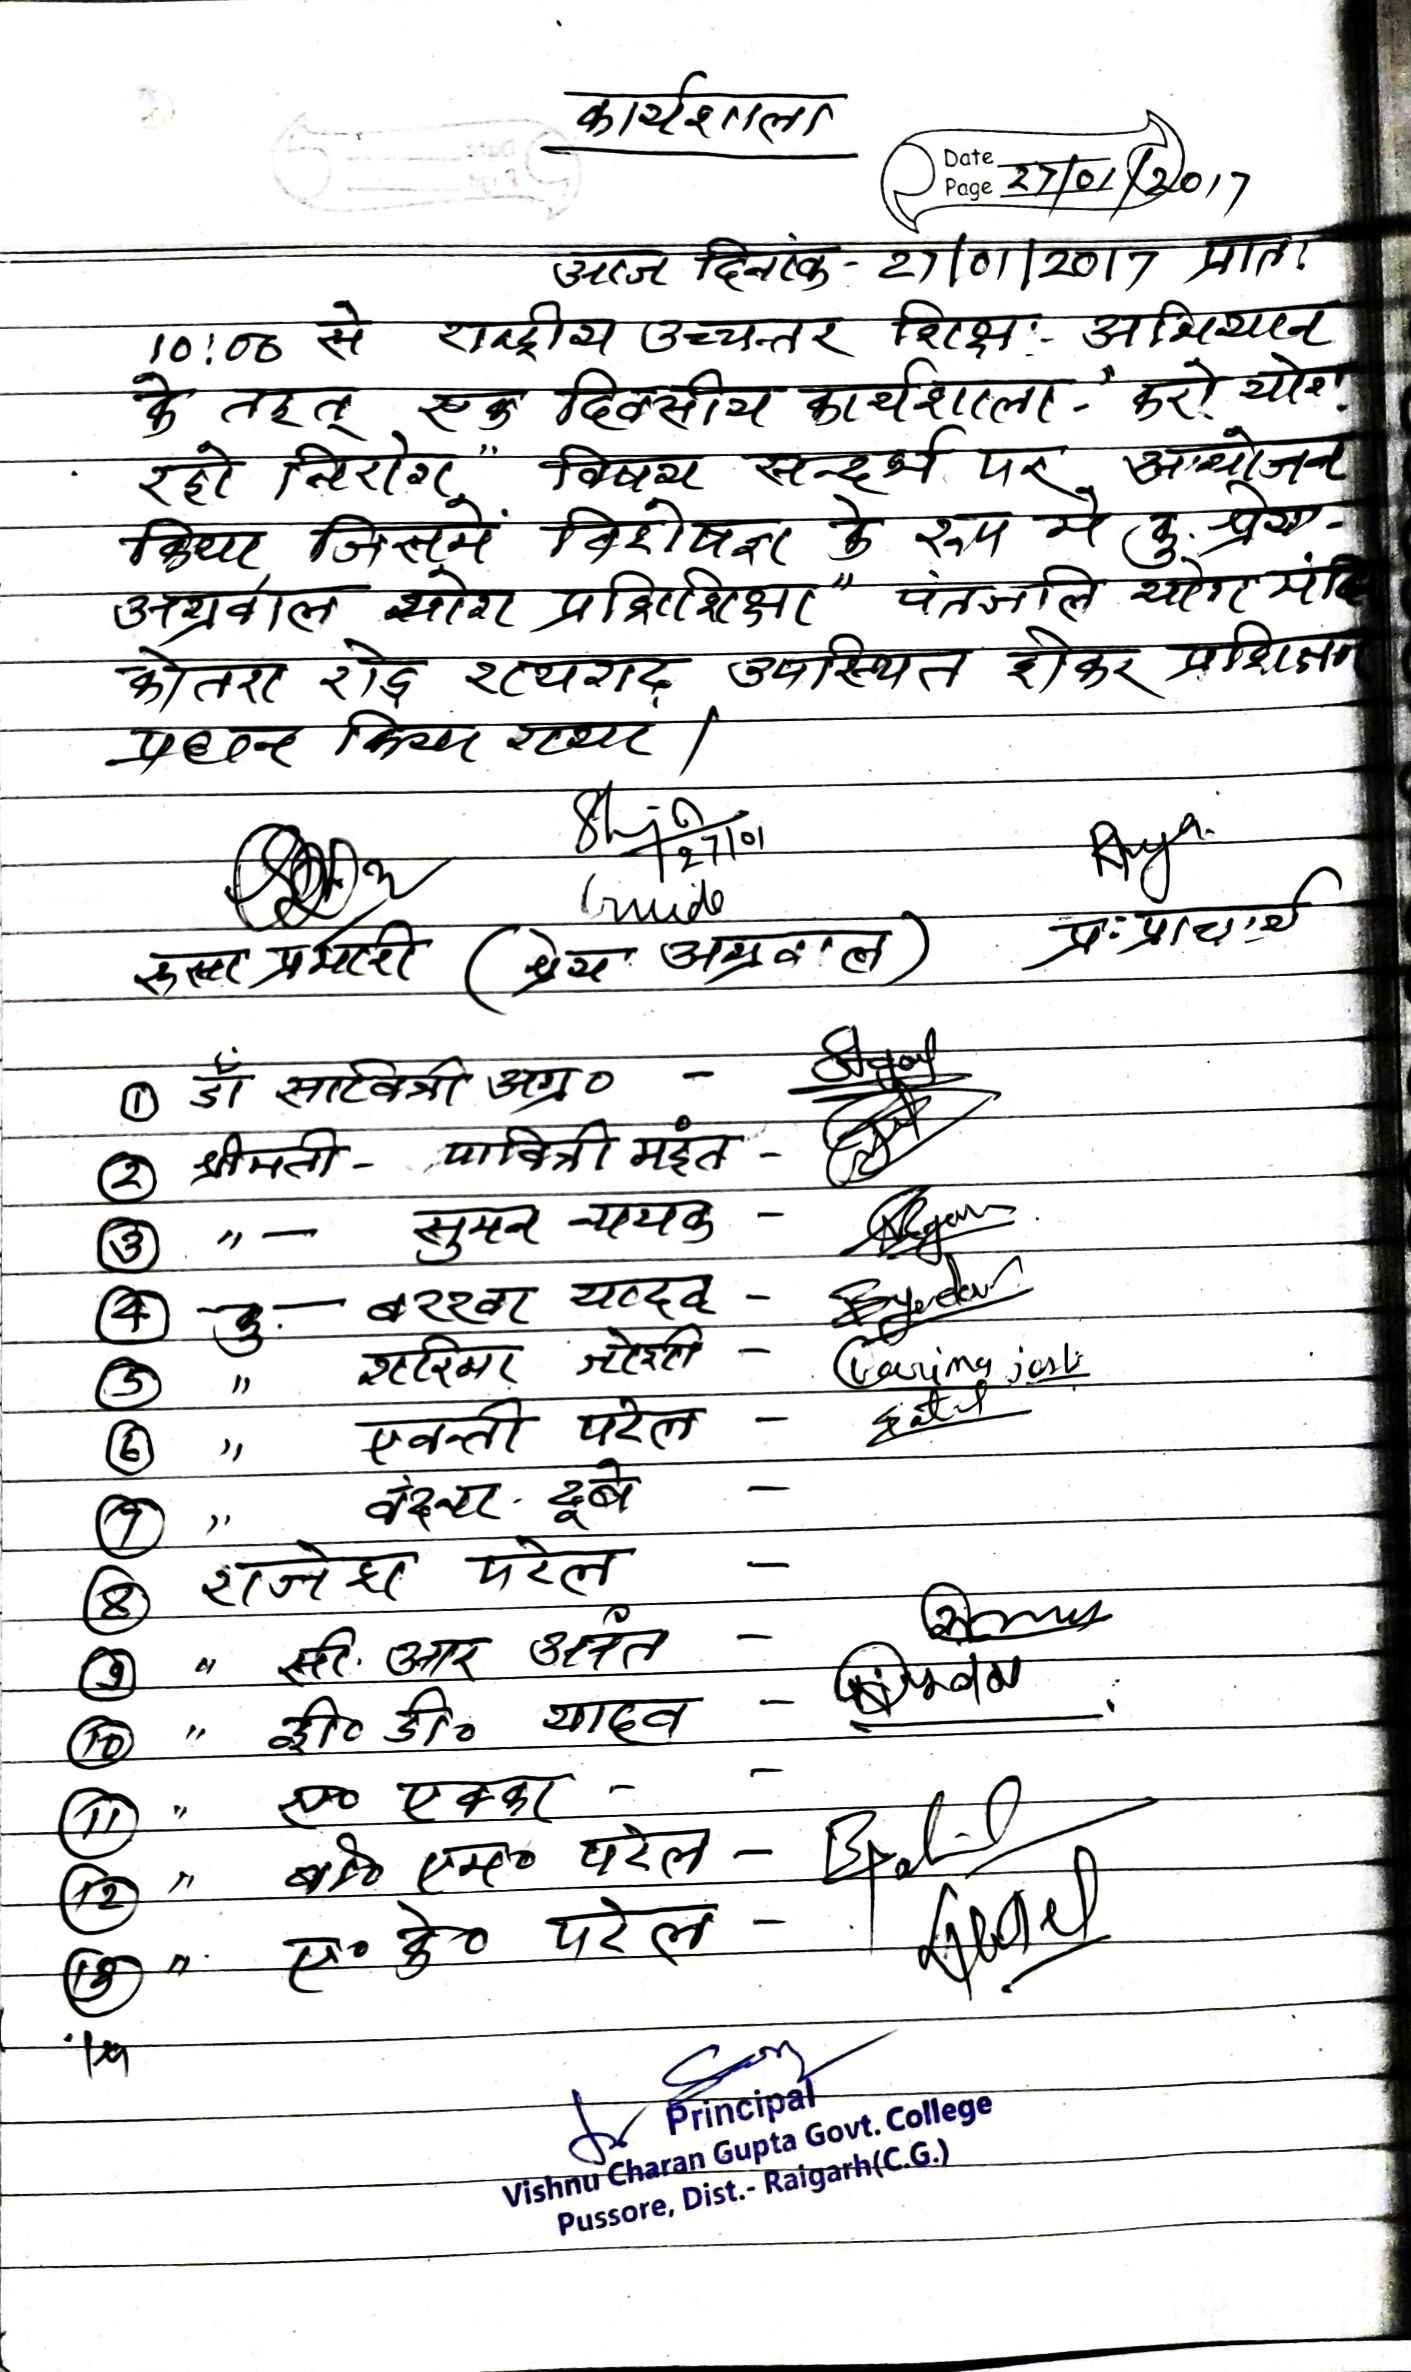 कार्यशाला
Date
Page 27/01/2017
आज दिनांक - 27/01/2017 प्रातः
10:00 से राष्ट्रीय उच्चतर शिक्षा अभियान
के तहत् एक दिवसीय कार्यशाला - "करो योग
रहो निरोग" विषय सन्दर्भ पर आयोजन
किया जिसमें विशेषज्ञ के रूप में कु.
अग्रवाल योग पंतजलि योग
कोतरा रोड़ रायगढ़ उपस्थित होकर प्रशिक्षण
प्रदान किया गया |
27/01
Guide
रूसा प्रभारी ( अग्रवाल) प्र. प्राचार्य
① डॉ सावित्री अग्र० -
② श्रीमती - सावित्री महंत -
③ " - सुमन नायक -
④ कु. - बरखा यादव - Byadav
⑤ " गरिमा जोशी - Garima joshi
⑥ " एवन्ती पटेल - Patel
⑦ " वंदना दूबे -
⑧ राजेश पटेल -
⑨ " सी. आर -
⑩ " डी० यादव -
⑪ " एक्का - -
⑫ " बी० एम० पटेल - Bpatel
⑬ " ए० के० पटेल -
Principal
Vishnu Charan Gupta Govt. College
Pussore, Dist.- Raigarh(C.G.)